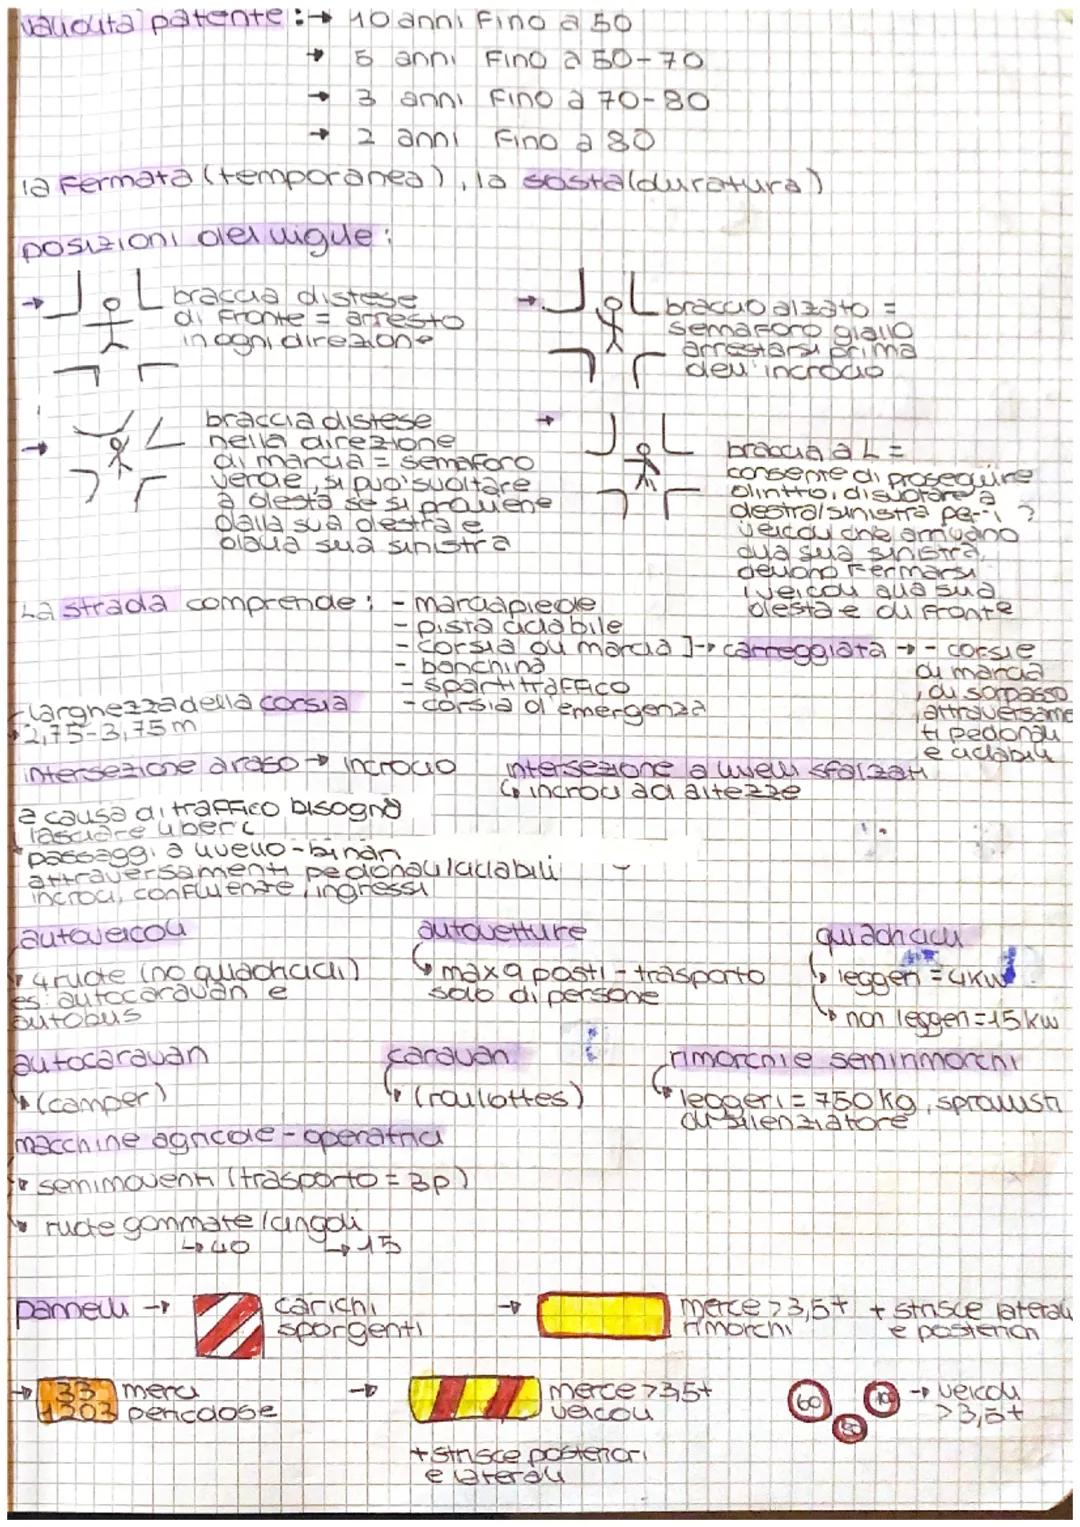 validità patente: → 10 anni Fino a 50
→ 5 anni Fino a 50-70
→ 3 anni Fino a 70-80
→ 2 anni Fino a 80
la Fermata (temporanea), la sosta (duratura)
posizioni del vigile:
→ braccia distese
di Fronte = arresto
in ogni direzione
→ braccio alzato =
semaforo giallo
arrestarsi prima
dell'incrocio
→ braccia distese
nella direzione
di marcia = semaforo
verde, si può svoltare
a destra se si proviene
dalla sua destra e
dalla sua sinistra
→ braccia a L =
consente di proseguire
diritto, di svoltare a
destra/sinistra per i ?
veicoli che arrivano
alla sua sinistra,
devono Fermarsi
i veicoli alla sua
destra e di Fronte
La strada comprende: - marciapiede
- pista ciclabile
- corsia di marcia ]→ carreggiata → - corsie
di marcia
, di sorpasso
, attraversame
ti pedonali
e ciclabili
- banchina
- spartitraffico
- corsia d'emergenza
larghezza della corsia
→ 2,75-3,75 m
intersezione a raso → incrocio
intersezione a livelli sfalzati
↳ incroci ad altezze
a causa di traffico bisogna
lasciare liberi
passaggi a livello - binari
attraversamenti pedonali/ciclabili
incroci, confluenze, ingressi
autoveicoli
↳ 4 ruote (no quadricicli)
es: autocaravan e
autobus
autovetture
↳ max 9 posti - trasporto
solo di persone
quadricicli
↳ leggeri = 4KW
↳ non leggeri = 15 kw
autocaravan
↳ (camper)
caravan
↳ (roulottes)
rimorchi e semirimorchi
↳ leggeri = 750 kg, sprovvisti
di silenziatore
macchine agricole - operatrici
↳ semimoventi (trasporto = 3p)
↳ ruote gommate/cingoli
↳ 40 ↳ 15
pannelli → carichi
sporgenti
→ merce > 3,5t + strisce laterali
rimorchi e posteriori
→ 33
1203
merci
pericolose
→ merce > 3,5t
veicoli
+ strisce posteriori
e laterali
60 80 100 → veicoli
> 3,5t